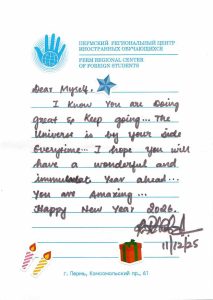 ПЕРМСКИЙ РЕГИОНАЛЬНЫЙ ЦЕНТР
ИНОСТРАННЫХ ОБУЧАЮЩИХСЯ
PERM REGIONAL CENTER
OF FOREIGN STUDENTS
Dear Myself,
I Know You are Doing
great so Keep going... The
Universe is by your side
Everytime... I hope you will
have a wonderful and
Year ahead...
You are Amazing...
Happy New Year 2026.
11/12/25
г. Пермь, Комсомольский пр., 61